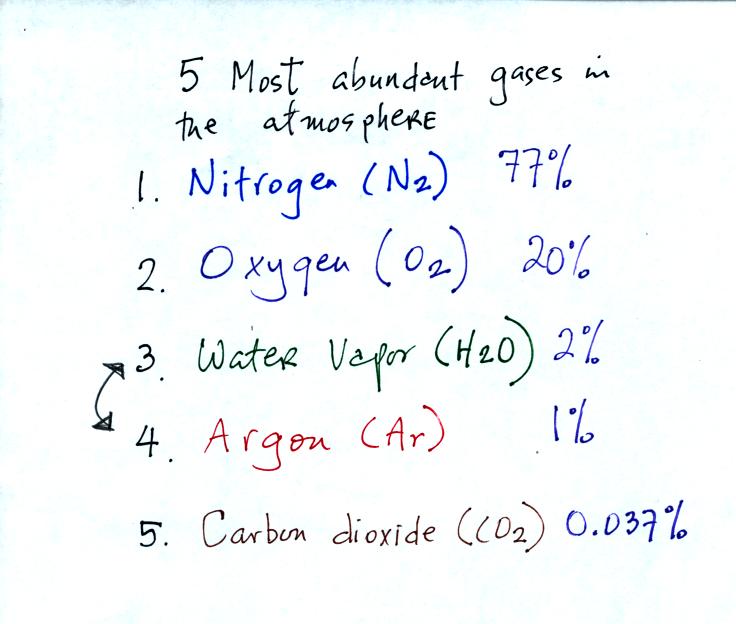 5 Most abundant gases in
the atmosphere
1. Nitrogen (N2) 77%
2. Oxygen (O2) 20%
3. Water Vapor (H2O) 2%
4. Argon (Ar) 1%
5. Carbon dioxide (CO2) 0.037%